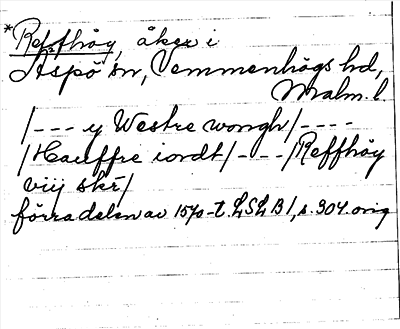 *Reffhöy, åker i
Äspö sn, Vemmenhögs hd,
Malm. l.
/--- y Westre wongh/----
/Hauffre iordt/---/Reffhöy
viij skr/
förra delen av 1570-t. LSLB 1, s. 304. orig